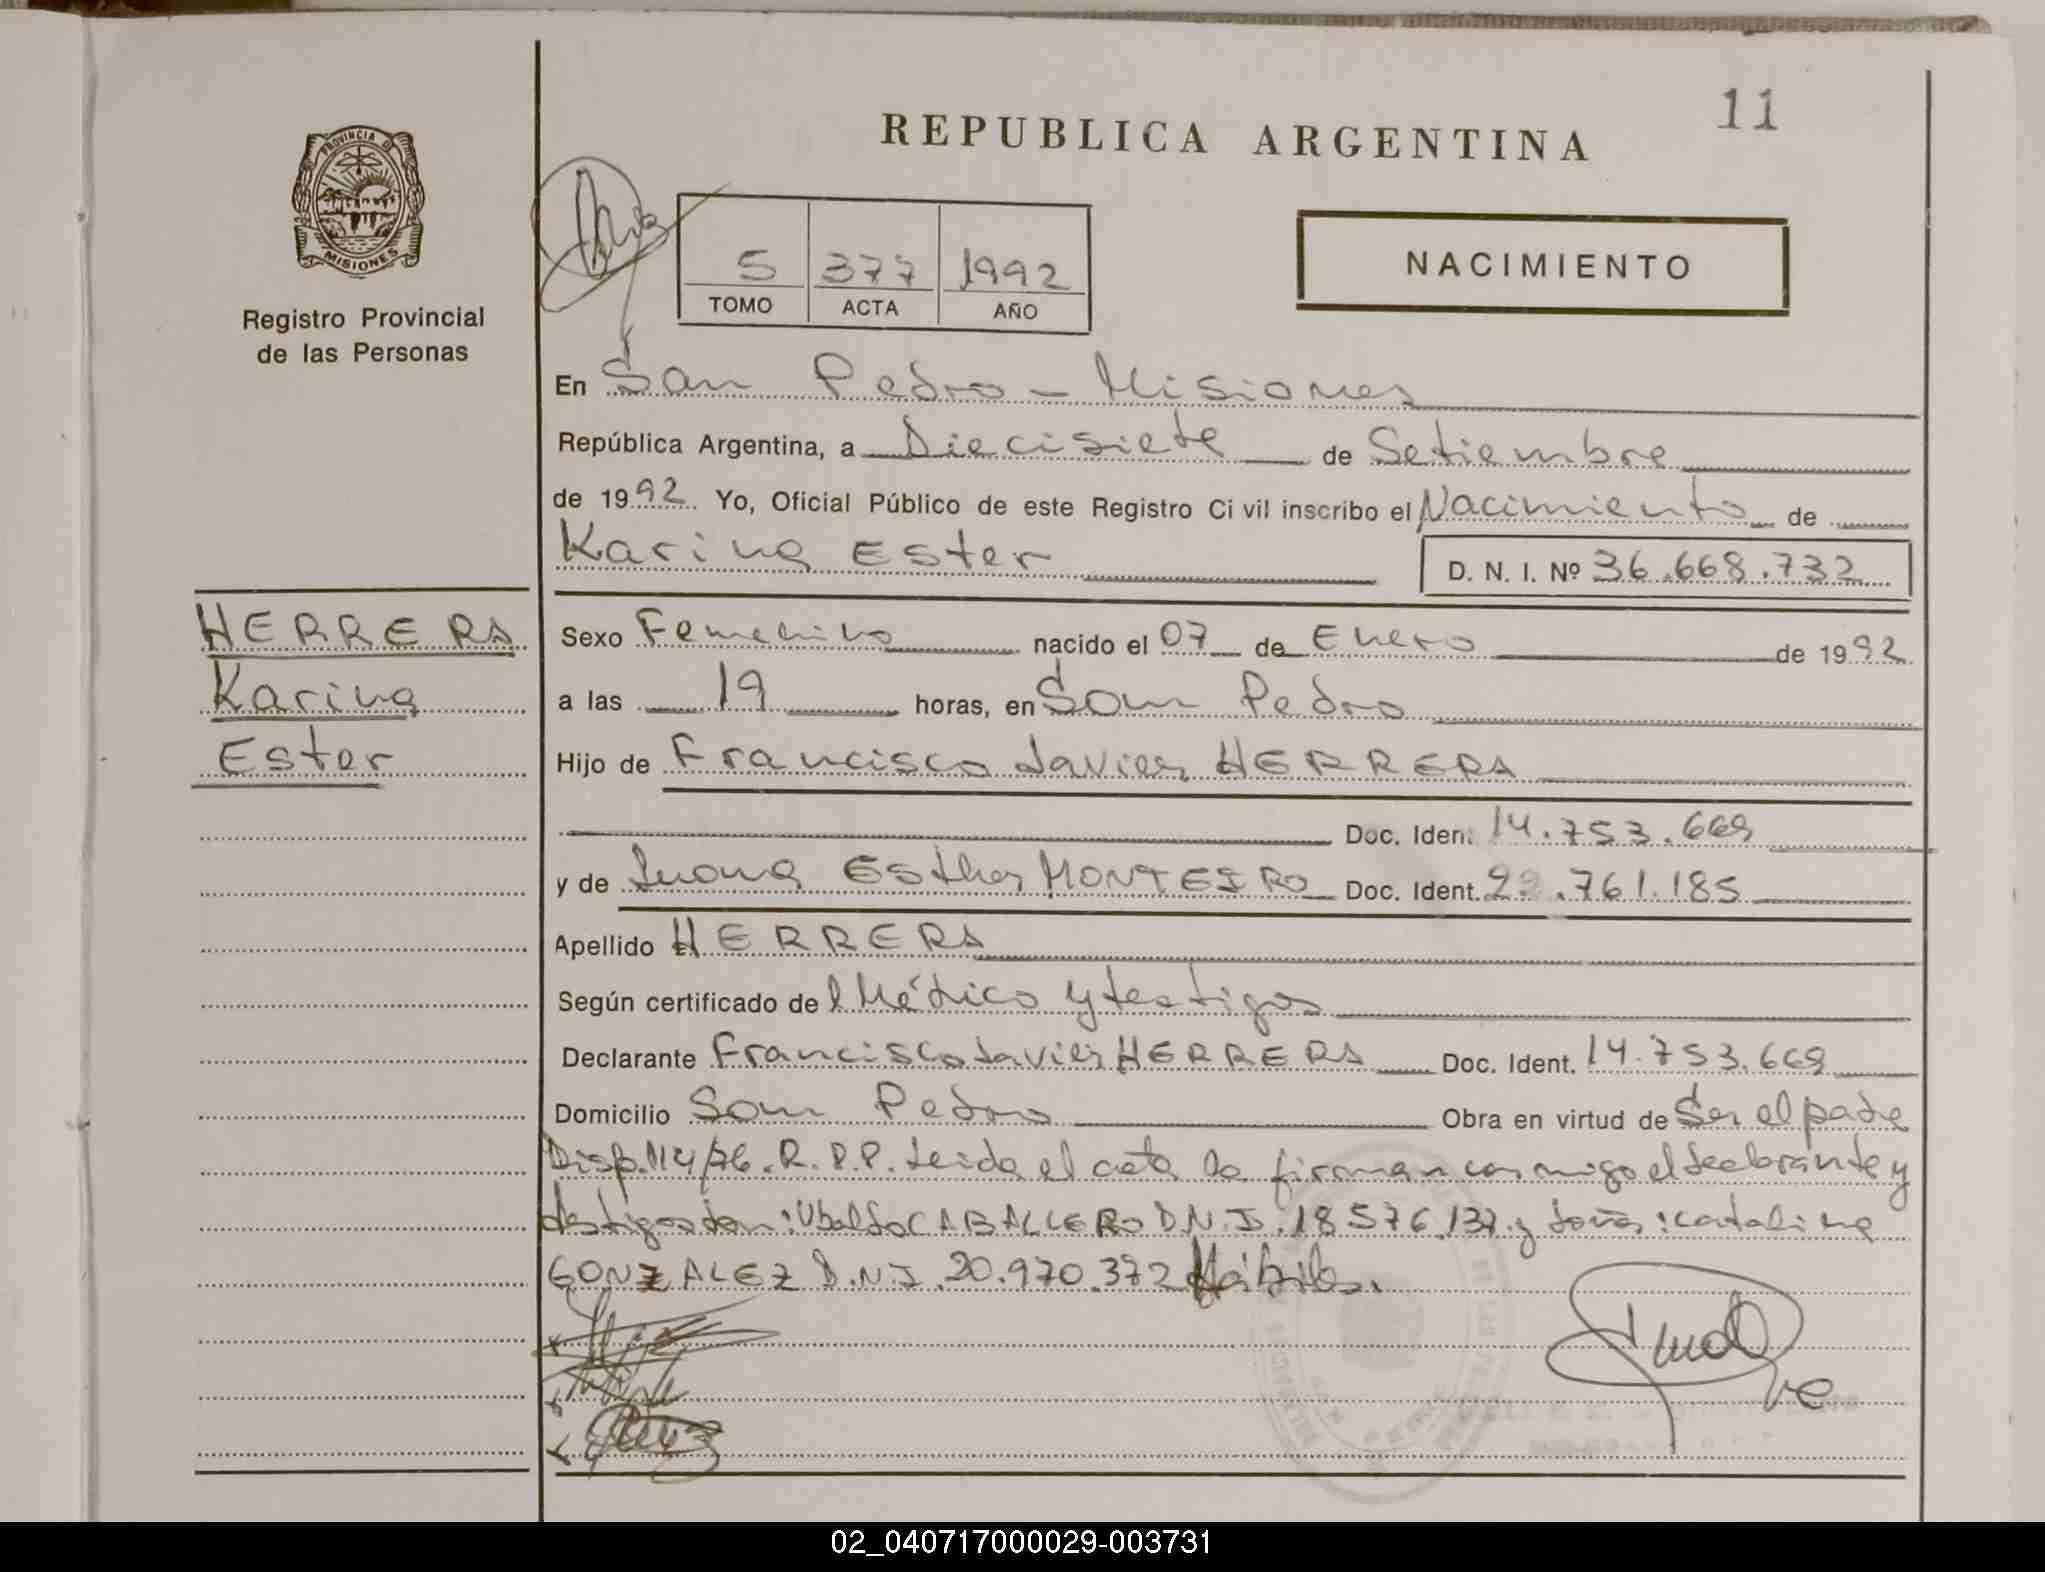 11
REPUBLICA ARGENTINA
PROVINCIA DE
MISIONES
Registro Provincial
de las Personas
5 377 1992
TOMO ACTA AÑO
NACIMIENTO
En San Pedro - Misiones
República Argentina, a Diecisiete de Setiembre
de 1992 Yo, Oficial Público de este Registro Civil inscribo el Nacimiento de
Karina Ester D. N. I. Nº 36.668.732
HERRERA
Karina
Ester
Sexo Femenino nacido el 07 de Enero de 1992
a las 19 horas, en San Pedro
Hijo de Francisco Javier HERRERA
Doc. Iden. 14.753.669
y de Juana Esther MONTEIRO Doc. Ident. 22.761.185
Apellido HERRERA
Según certificado del Médico y testigos
Declarante Francisco Javier HERRERA Doc. Ident. 14.753.669
Domicilio San Pedro Obra en virtud de Ser el padre
Disp. 114/76. R.P.P. Leida el acta la firman conmigo el declarante y
testigos Don: Ubaldo CABALLERO D.N.I. 18.576.137 y Doña: Catalina
GONZALEZ D.N.I. 20.970.372 Hábiles.
02_040717000029-003731